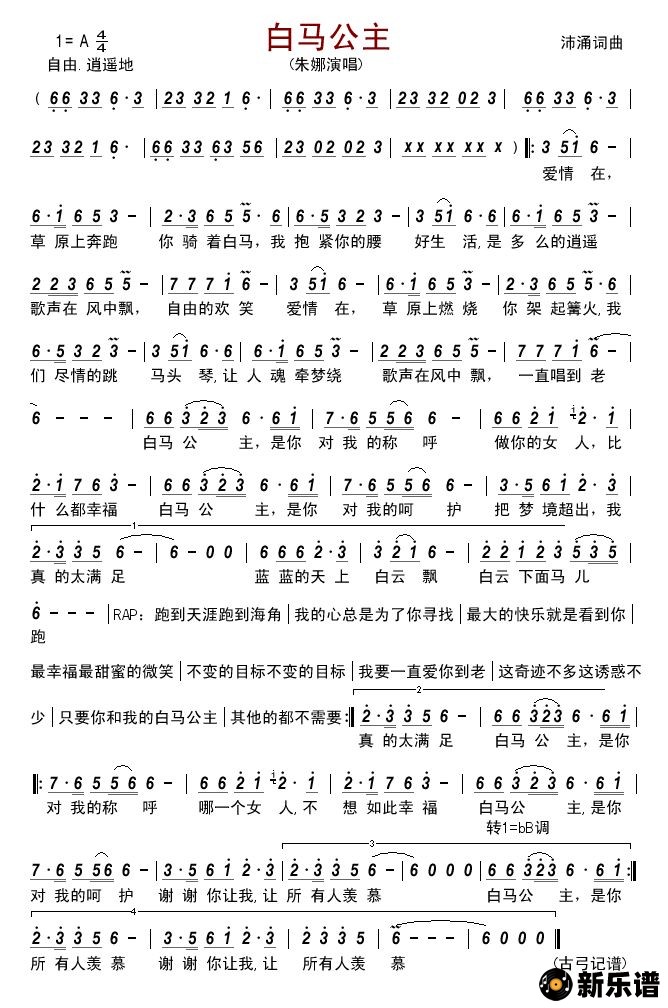 白马公主
1= A 4/4
沛涌词曲
自由.逍遥地
(朱娜演唱)
( 66 33 6·3 | 23 32 1 6· | 66 33 6·3 | 23 32 02 3 | 66 33 6·3 |
23 32 1 6· | 66 33 63 56 | 23 02 02 3 | xx xx xx xx ) ‖: 3 51 6 - |
爱情 在,
6·1 6 5 3 - | 2·3 6 5 5·6 | 3·6 3 2 2 - | 3 51 6·6 | 6·1 6 5 3 - |
草 原上奔跑 你 骑 着白马,我 抱 紧你的腰 好生 活,是 多 么的逍遥
2 2 3 6 5 5 - | 7 7 7 1 6 - | 3 51 6 - | 6·1 6 5 3 - | 2·3 6 5 5·6 |
歌声在 风中飘, 自由的欢 笑 爱情 在, 草 原上燃 烧 你 架 起篝火,我
6·5 3 2 3 - | 3 51 6·6 | 6·1 6 5 3 - | 2 2 3 6 5 5 - | 7 7 7 1 6 - |
们 尽情的跳 马头 琴,让 人 魂 牵梦绕 歌声在风中 飘, 一直唱到 老
6 - - - | 6 6 3 2 3 6·6 1 | 7·6 5 5 6 6 - | 6 6 2 1 2·1 |
白马 公 主,是你 对 我 的称 呼 做你的女 人,比
2·1 7 6 3 - | 6 6 3 2 3 6·6 1 | 7·6 5 5 6 6 - | 3·5 6 1 2·3 |
什 么都幸福 白马 公 主,是你 对 我的呵 护 把 梦 境超出,我
1
2·3 3 5 6 - | 6 - 0 0 | 2·2 1 2 3 - | 3 2 1 6 - | 2 2 1 2 3 5 3 5 |
真 的太满 足 蓝 蓝的天 上 白云 飘 白云 下面马 儿
6 - - - | RAP: 跑到天涯跑到海角 | 我的心总是为了你寻找 | 最大的快乐就是看到你
跑
最幸福最甜蜜的微笑 | 不变的目标不变的目标 | 我要一直爱你到老 | 这奇迹不多这诱惑不
2
少 | 只要你和我的白马公主 | 其他的都不需要:‖ 2·3 3 5 6 - | 6 6 3 2 3 6·6 1 |
真 的太满 足 白马 公 主,是你
‖: 7·6 5 5 6 6 - | 6 6 2 1 2·1 | 2·1 7 6 3 - | 6 6 3 2 3 6·6 1 |
对 我的称 呼 哪一个女 人,不 想 如此幸福 白马公 主,是你
转1=bB调
3
7·6 5 56 6 - | 3·5 6 1 2·3 | 2·3 3 5 6 - | 6 0 0 0 | 6 6 3 2 3 6·6 1 :‖
对 我的呵 护 谢 谢 你让我,让 所 有人羡 慕 白马公 主,是你
4
2·3 3 5 6 - | 3·5 6 1 2·3 | 2·3 3 5 | 6 - - - | 6 0 0 0 ‖
所 有人羡 慕 谢 谢 你让我,让 所 有人羡 慕 (古弓记谱)
新乐谱